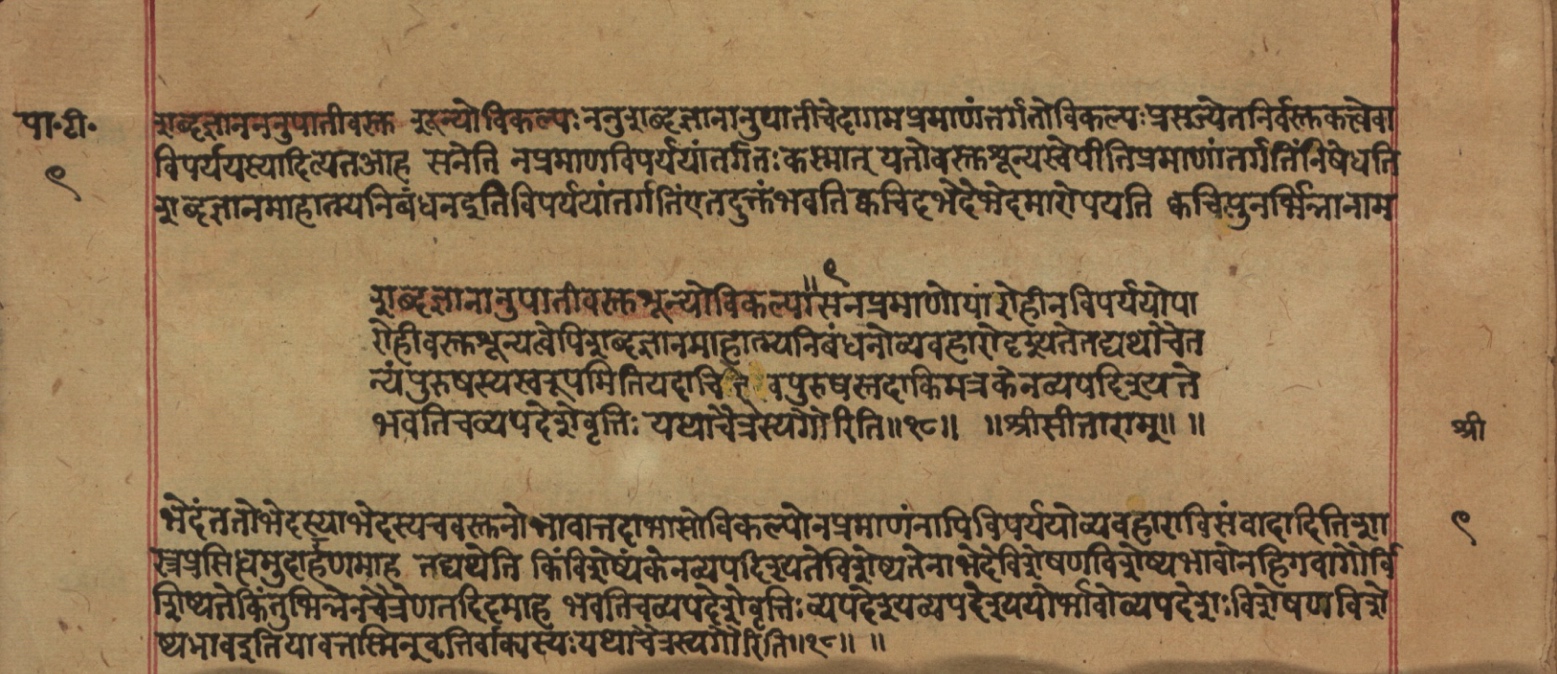 पा॰टी॰
९
शब्दज्ञानननुपातीवस्तु शून्योविकल्पः ननुशब्दज्ञानानुपातीचेदागमप्रमाणंतर्गतोविकल्पः प्रसज्येतनिर्वस्तुकत्वेवा
विपर्ययस्यादित्यतआह सनेति नप्रमाणविपर्ययांतर्गतः कस्मात् यतोवस्तुशून्यत्वेपीतिप्रमाणांतर्गतिंनिषेधति
शब्दज्ञानमाहात्म्यनिबंधनइतिविपर्ययांतर्गतिंएतदुक्तंभवति क्वचिदभेदेभेदमारोपयति क्वचित्पुनर्भिन्नानाम
९
शब्दज्ञानानुपातीवस्तुशून्योविकल्पः॥सनप्रमाणोपारोहीनविपर्ययोपा
रोहीवस्तुशून्यत्वेपिशब्दज्ञानमाहात्म्यनिबंधनोव्यवहारोदृश्यतेतद्यथाचैत
न्यंपुरुषस्यस्वरूपमितियदाचिति वपुरुषस्तदाकिमत्रकेनव्यपदिश्यते
भवतिचव्यपदेशेवृत्तिः यथाचैत्रस्यगौरिति॥१८॥ ॥श्रीसीतारामू॥ ॥
श्री
भेदंततोभेदस्याभेदस्यचवस्तुनोभावात्तदाभासोविकल्पोनप्रमाणंनापिविपर्ययोव्यवहाराविसंवादादितिशा
९
स्त्रप्रसिद्धमुदाहरणमाह तद्यथेति किंविशेष्यंकेनव्यपदिश्यतेविशेष्यतेनाभेदेविशेषणविशेष्यभावोनहिगवागौर्वि
शिष्यतेकिंतुभिन्नेनचैत्रेणतदिदमाह भवतिचव्यपदेशेवृत्तिः व्यपदेश्यव्यपदेश्ययोर्भावोव्यपदेशः विशेषणविशे
ष्यभावइतियावत्तस्मिन्वृत्तिर्वाक्यस्यः यथाचैत्रस्यगौरिति॥१८॥ ॥